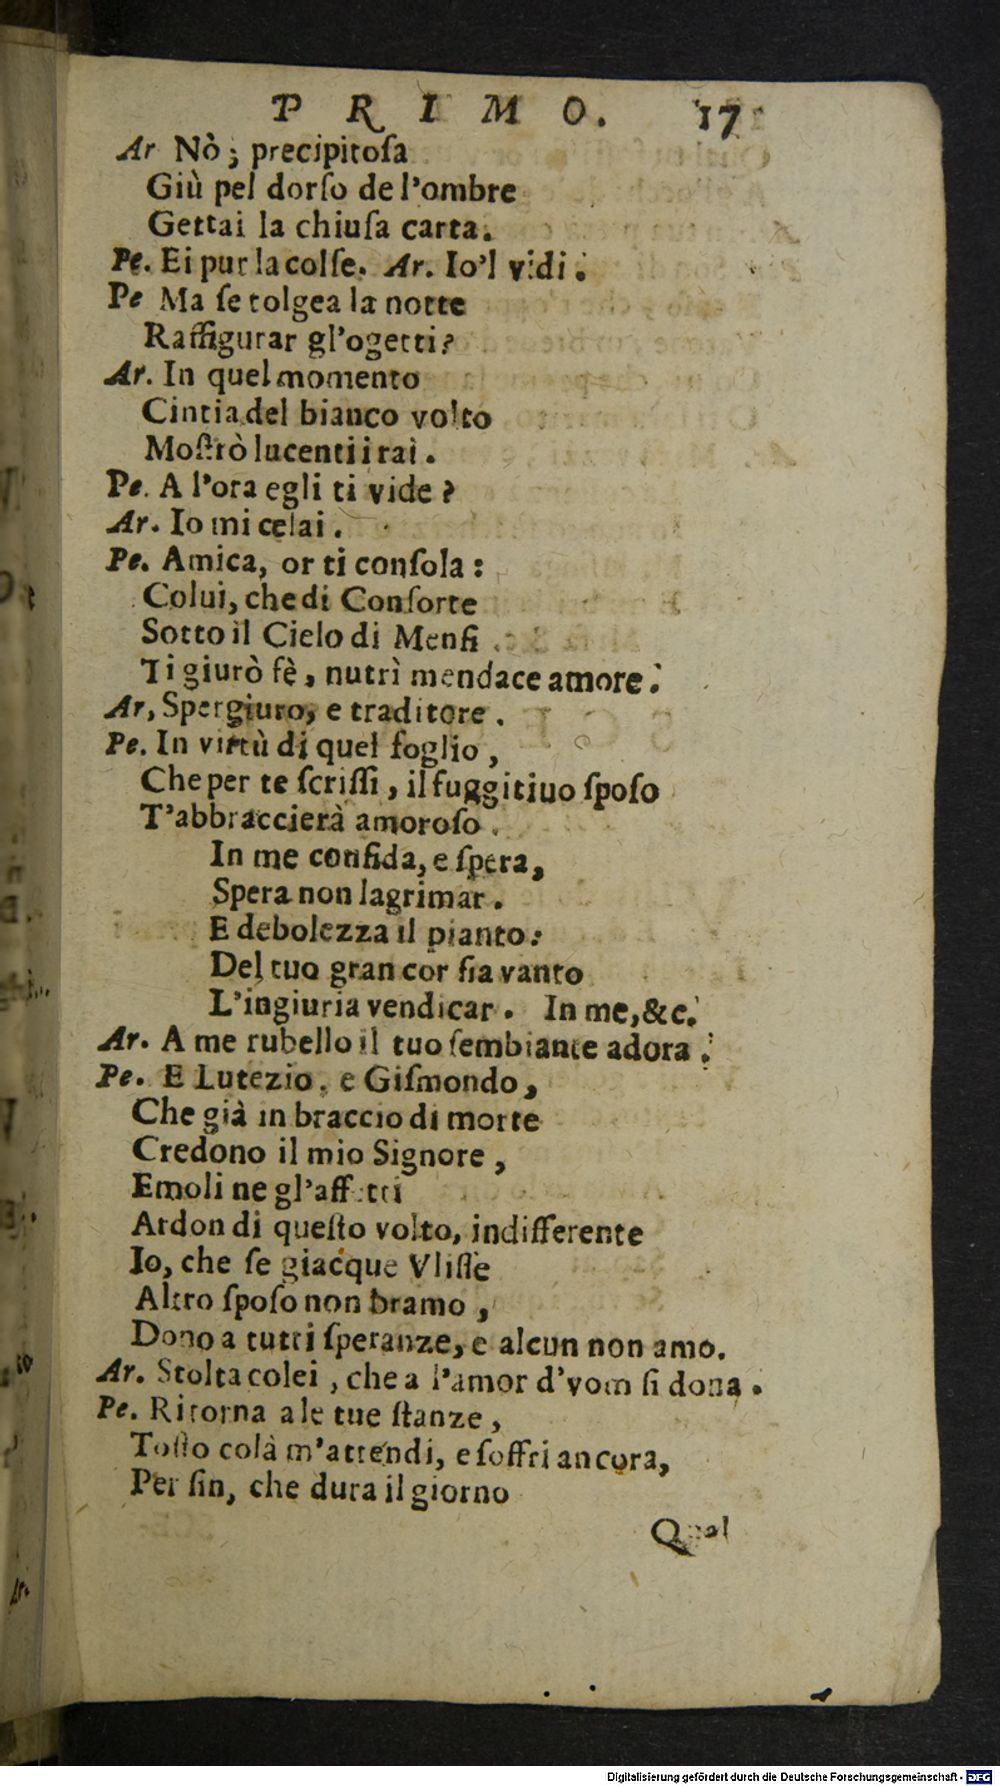 PRIMO. 17
Ar Nò; precipitoſa
Giù pel dorſo de l'ombre
Gettai la chiuſa carta.
Pe. Ei pur la colſe. Ar. Io'l vidi.
Pe Ma ſe tolgea la notte
Raffigurar gl'ogetti?
Ar. In quel momento
Cintia del bianco volto
Moſtrò lucenti i rai.
Pe. A l'ora egli ti vide?
Ar. Io mi celai.
Pe. Amica, or ti conſola:
Colui, che di Conſorte
Sotto il Cielo di Menfi
Ti giurò fè, nutrì mendace amore.
Ar, Spergiuro, e traditore.
Pe. In virtù di quel foglio,
Che per te ſcriſſi, il fuggitiuo ſpoſo
T'abbraccierà amoroſo.
In me confida, e ſpera,
Spera non lagrimar.
E debolezza il pianto:
Del tuo gran cor ſia vanto
L'ingiuria vendicar. In me, &c.
Ar. A me rubello il tuo ſembiante adora.
Pe. E Lutezio, e Giſmondo,
Che già in braccio di morte
Credono il mio Signore,
Emoli ne gl'affetti
Ardon di queſto volto, indifferente
Io, che ſe giacque Vliſſe
Altro ſpoſo non bramo,
Dono a tutti ſperanze, e alcun non amo.
Ar. Stolta colei, che a l'amor d'vom ſi dona.
Pe. Ritorna a le tue ſtanze,
Toſto colà m'attendi, e ſoffri ancora,
Per ſin, che dura il giorno
Qual
Digitalisierung gefördert durch die Deutsche Forschungsgemeinschaft - DFG